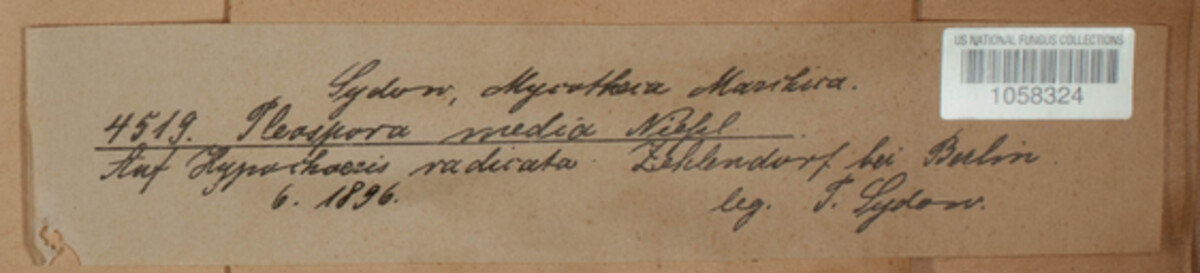 US NATIONAL FUNGUS COLLECTIONS
1058324
Sydow, Mycotheca Marchica.
4519. Pleospora media Niessl
Auf Hypochoeris radicata. Zehlendorf bei Berlin.
6. 1896. leg. P. Sydow.